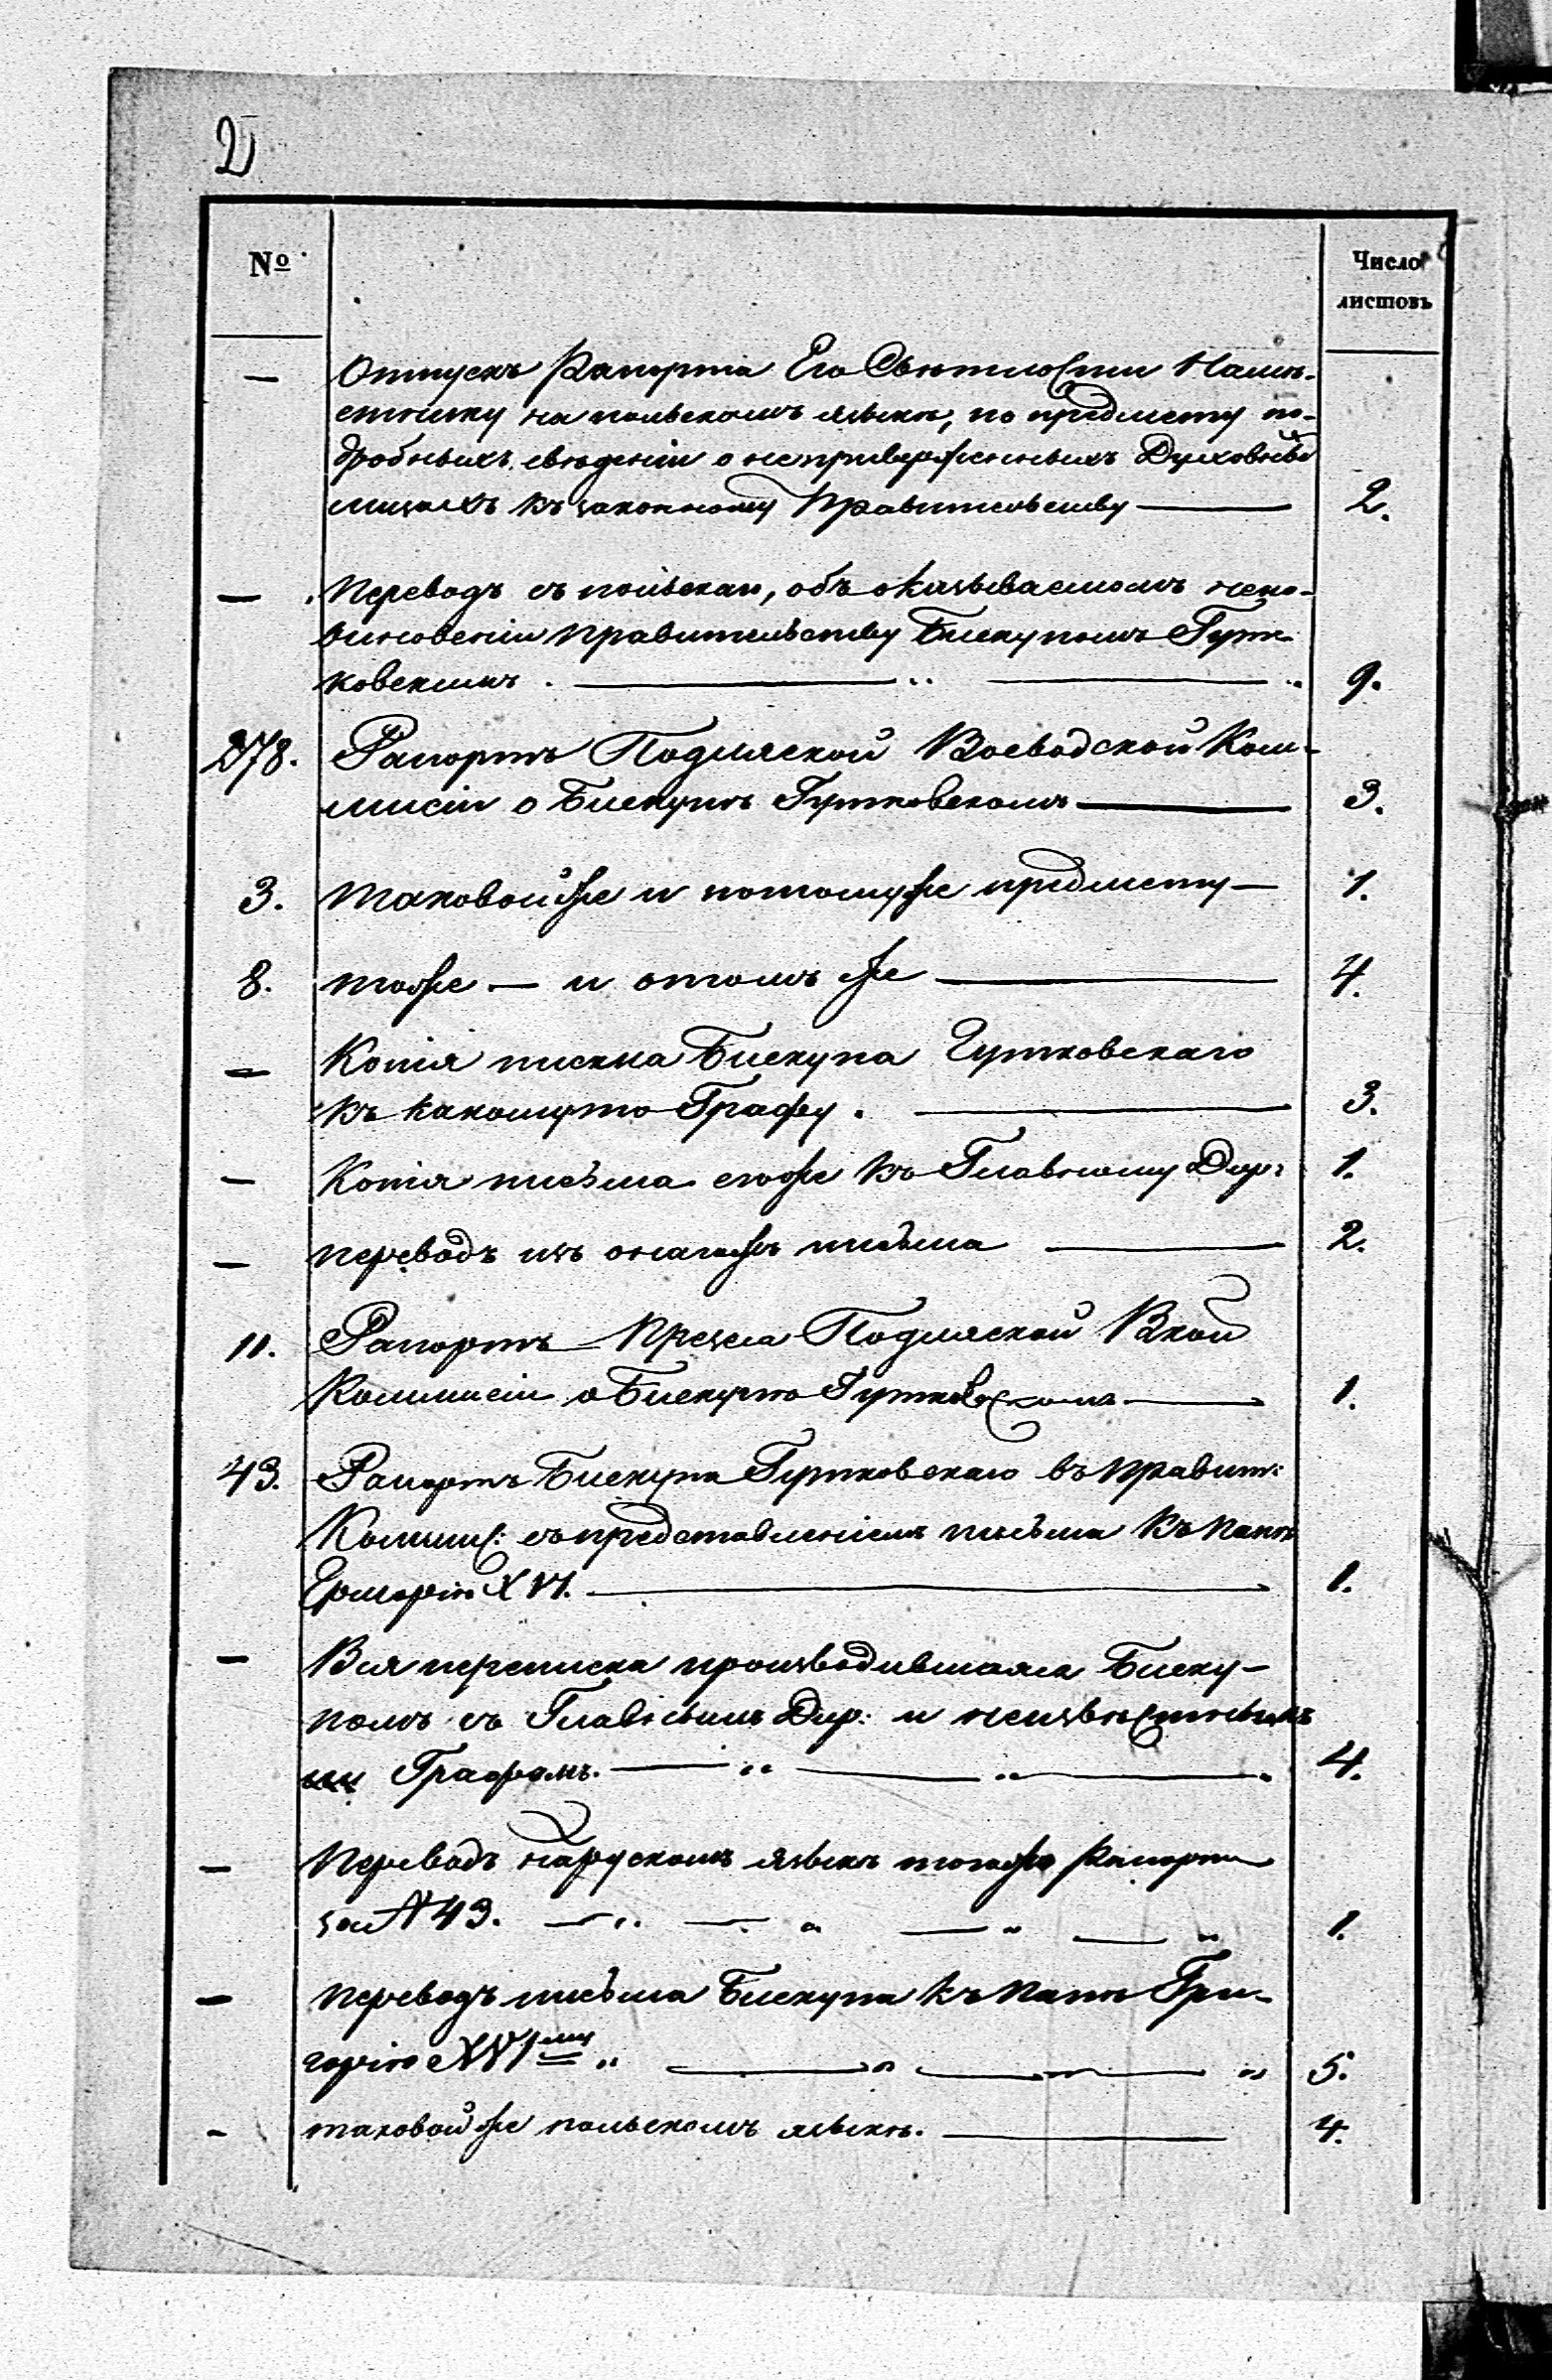 2
№
Число
листовъ
— Отпускъ Рапорта Его Свѣтлости Намѣ-
стнику на польскомъ языкѣ, по предмету по-
дробныхъ свѣденій о неприверженныхъ Духовныхъ
лицахъ къ законному Правительству — 2.
— Переводъ съ польскаго, объ оказываемомъ непо-
виновеніи Правительству Бискупомъ Гут-
ковскимъ . — „ — „ 9.
278. Рапортъ Подляской Воеводской Ком-
мисіи о Бискупѣ Гутковскомъ — 3.
3. Таковой же и потому же предмету — 1.
8. тоже — и о томъ же — 4.
— Копія писма Бискупа Гутковскаго
къ какому то Графу . — 3.
— Копія письма егоже къ Главному Дир: 1.
— переводъ изъ онагожъ письма — 2.
11. Рапортъ Презеса Подляской Вкой
Коммисіи о Бискупѣ Гутковскомъ — 1.
43. Рапортъ Бискупа Гутковскаго въ Правит:
Коммис: съ представленіемъ письма къ Папѣ
Григорію XVI. — 1.
— Вся переписка производившаяся Биску-
помъ съ Главнымъ Дир: и неизвѣстнымъ
Графомъ. — „ — „ — „ 4.
— Переводъ на рускомъ языкѣ тогоже Рапорта
за № 43. — „ — „ — „ — „ 1.
— переводъ письма Бискупа къ Папѣ Гри-
горію XVIму „ — „ — „ 5.
- таковой же польскомъ языкѣ. — 4.